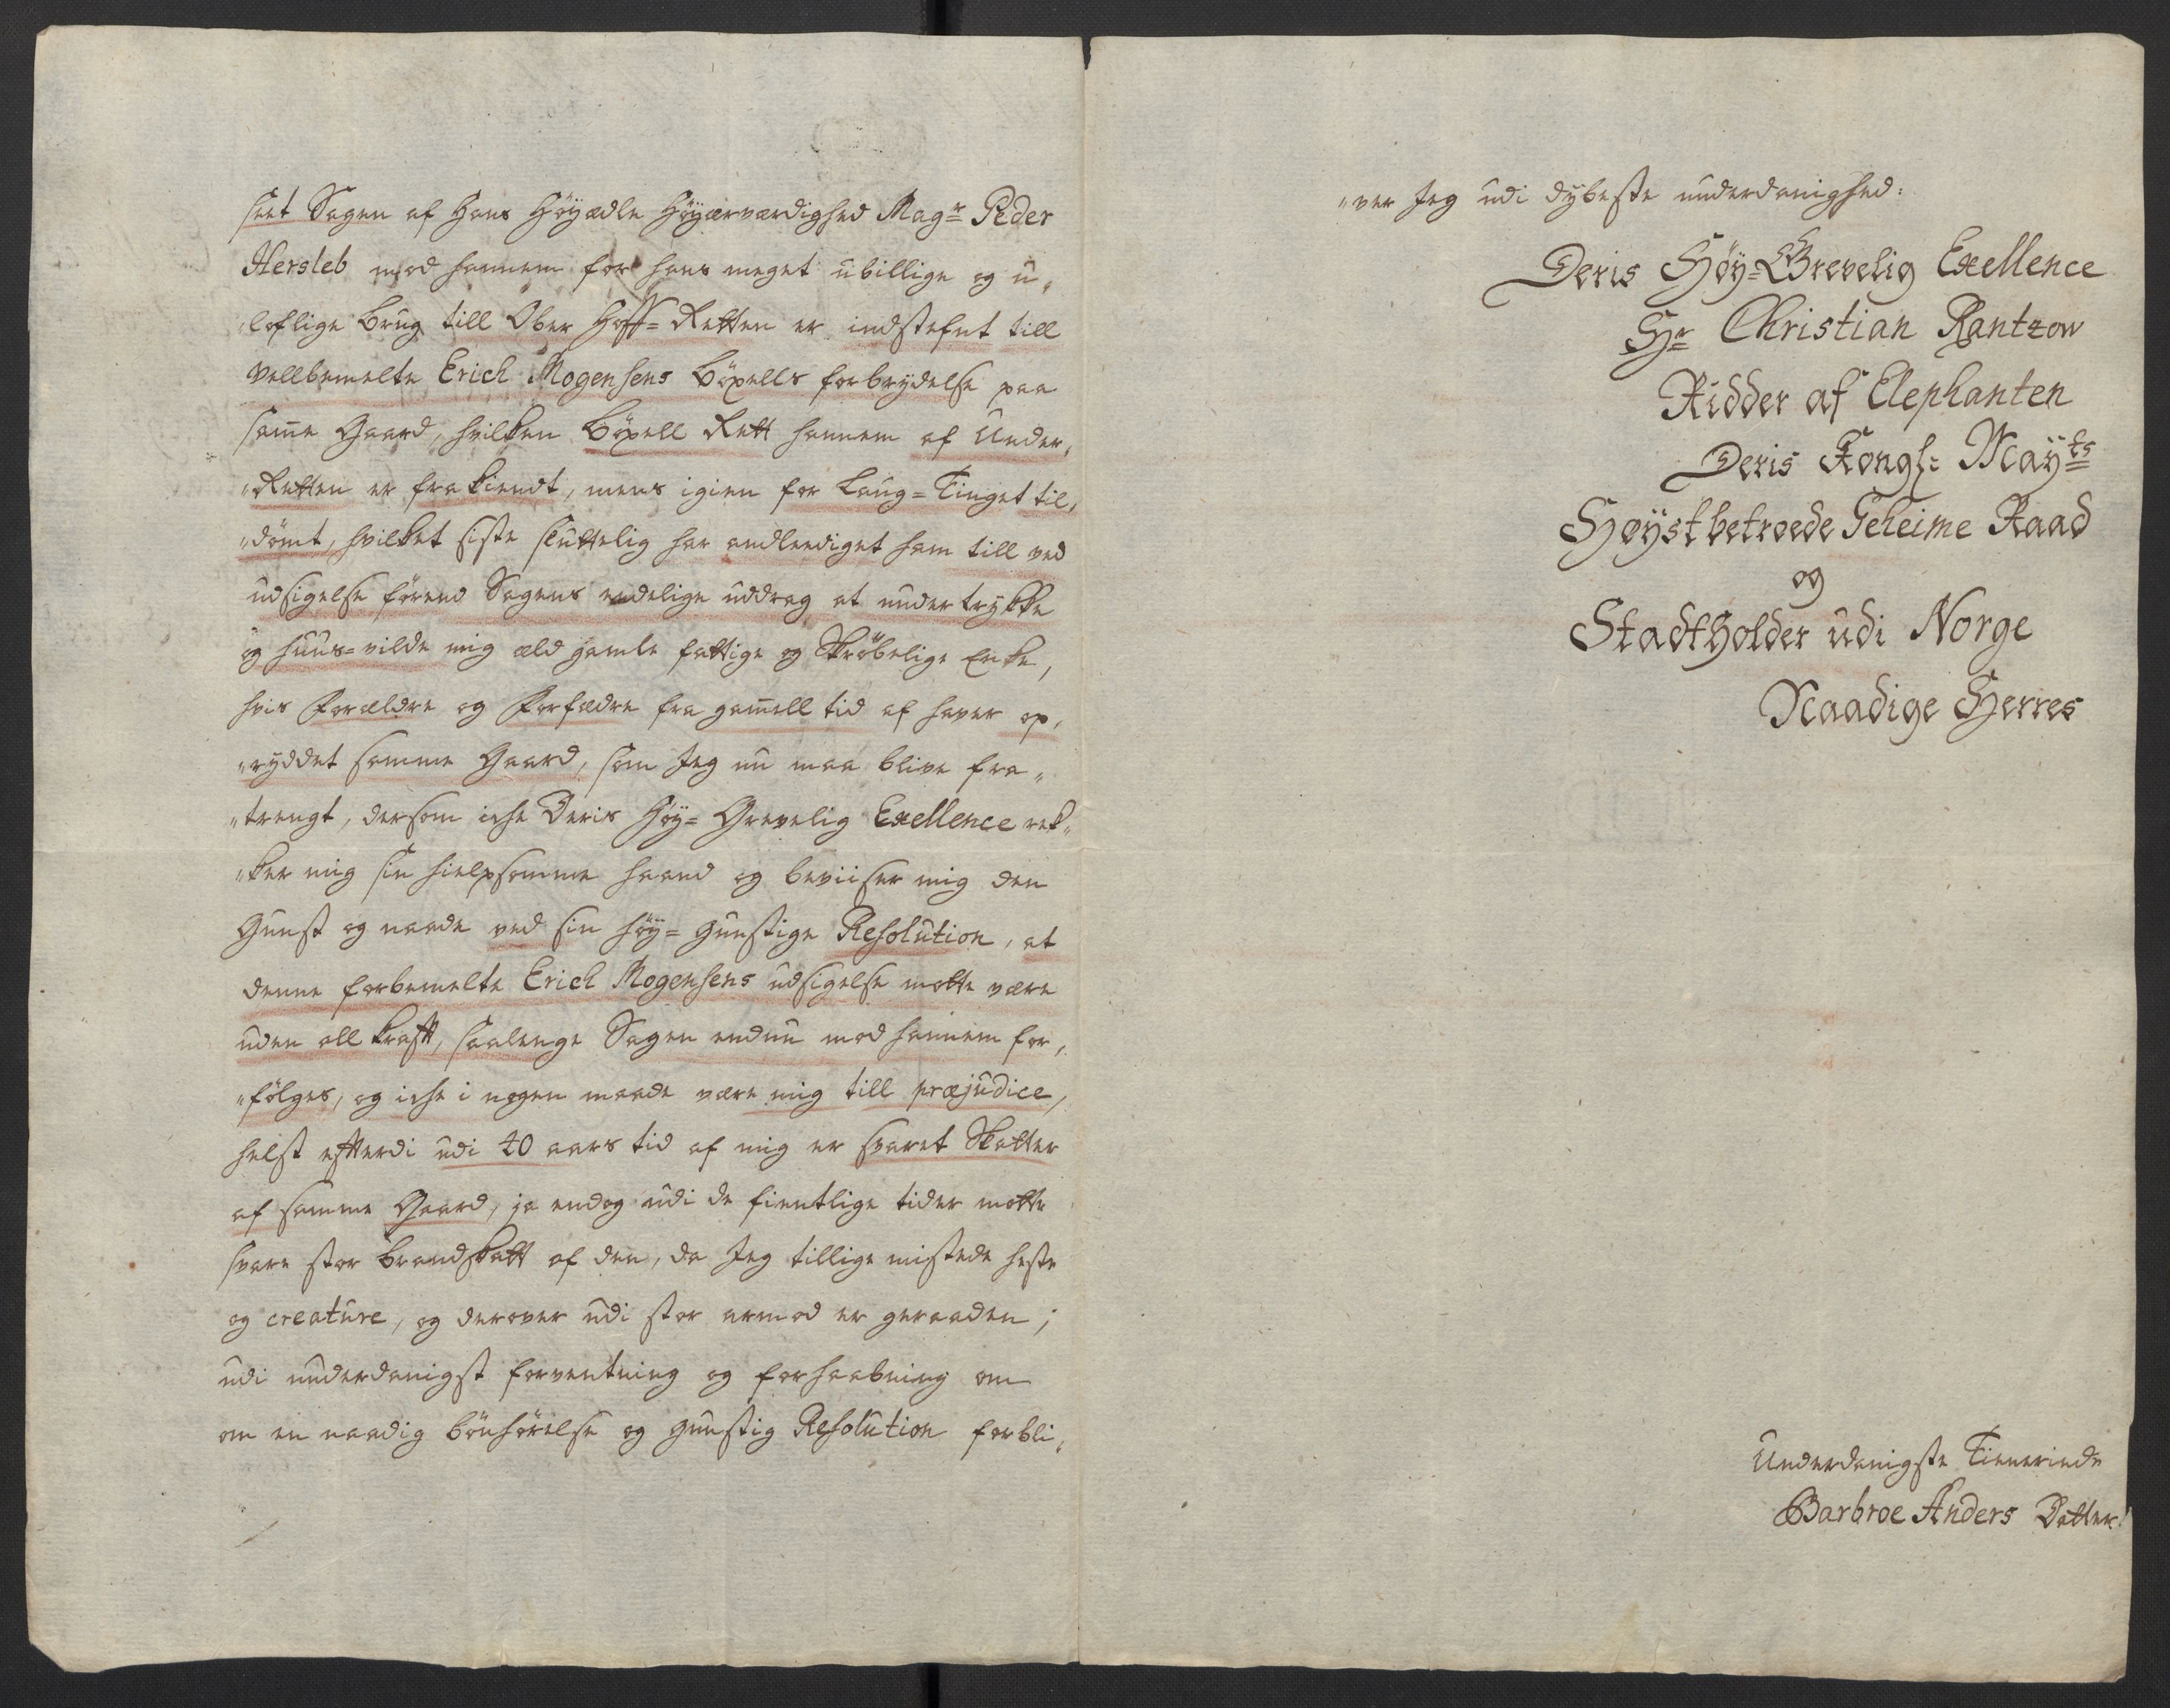 seet Sagen af Hans Höyædle Höyærværdighed Mag:r Peder
Hersleb mod hannem for hans meget ubillige og u„
„loflige brug till Ober Hoff=Retten er indstefnt till
vellbemelte Erich Mogensens böxells forbrydelse paa
same Gaard, hvilken böxell Rett hannem af Under„
„Retten er frakiendt, mens igien for Laug=Tinget til„
„dömt, hvilket siste sluttelig har andlediget ham till ved
udsigelse förend Sagens endelige uddrag at undertrykke
og huus=vilde mig æld gamle fattige og Skröbelige Enke,
hvis Forældre og Forfædre fra gamell tid af haver op„
„ryddet samme Gaard, som Jeg nu maa blive fra„
„trengt, dersom iche Deris Höy=Grevelig Exellence rek„
„ker mig sin hielpsomme haand og beviiser mig den
Gunst og naade ved sin höy=gunstige Resolution, at
denne forbemelte Erich Mogensens udsigelse motte være
uden all krafft, saalenge Sagen endnu mod hannem for„
„fölges, og iche i nogen maade være mig till præjudice,
helst efftterdi udi 40 aars tid af mig er svaret Skatter
af samme Gaard, ja endog udi de fientlige tider motte
svare stor brandskatt af den, da Jeg tillige mistede heste
og creature, og derover udi stor armod er geraaden;
udi underdanigst forventning og forhaabning om
om en naadig bönhörelse og gunstig Resolution forbli„
„ver Jeg udi dybeste underdanighed:
Deris Höy=Grevelig Exellence
Hr Christian Rantzow
Ridder af Elephanten
Deris Kongl: Mayts
Høyst betroede Geheime Raad
og
Stadtholder udi Norge
Naadige Herres
Underdanigste Tienerinde
Barbroe Anders Datter!